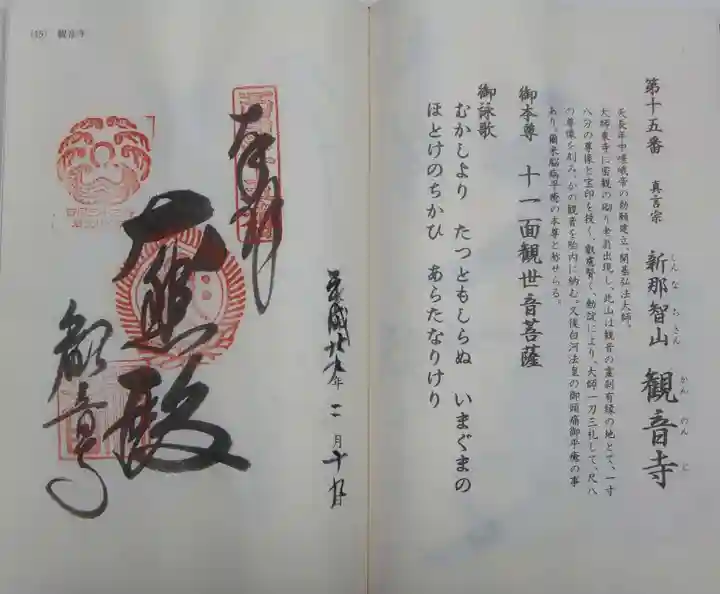 第十五番 真言宗 新那智山 観音寺
しんなちさん かんのんじ
天長年中嵯峨帝の勅願建立、開基弘法大師、
大師東寺に密観の砌り老翁出現し、此山は観音の霊刹有縁の地とて、一寸
八分の尊像と宝印を授く、叡慮賢く、勅諚により、大師一刀三礼して、尺八
の尊像を刻み、かの観音を胎内に納む、又後白河法皇の御頭痛御平癒の事
あり、爾来脳病平癒の本尊と称せらる。
御本尊 十一面観世音菩薩
御詠歌
むかしより たつともしらぬ いまぐまの
ほとけのちかひ あらたなりけり
(15) 観音寺
平成廿五年 二月十九日
奉拝
大悲殿
観音寺